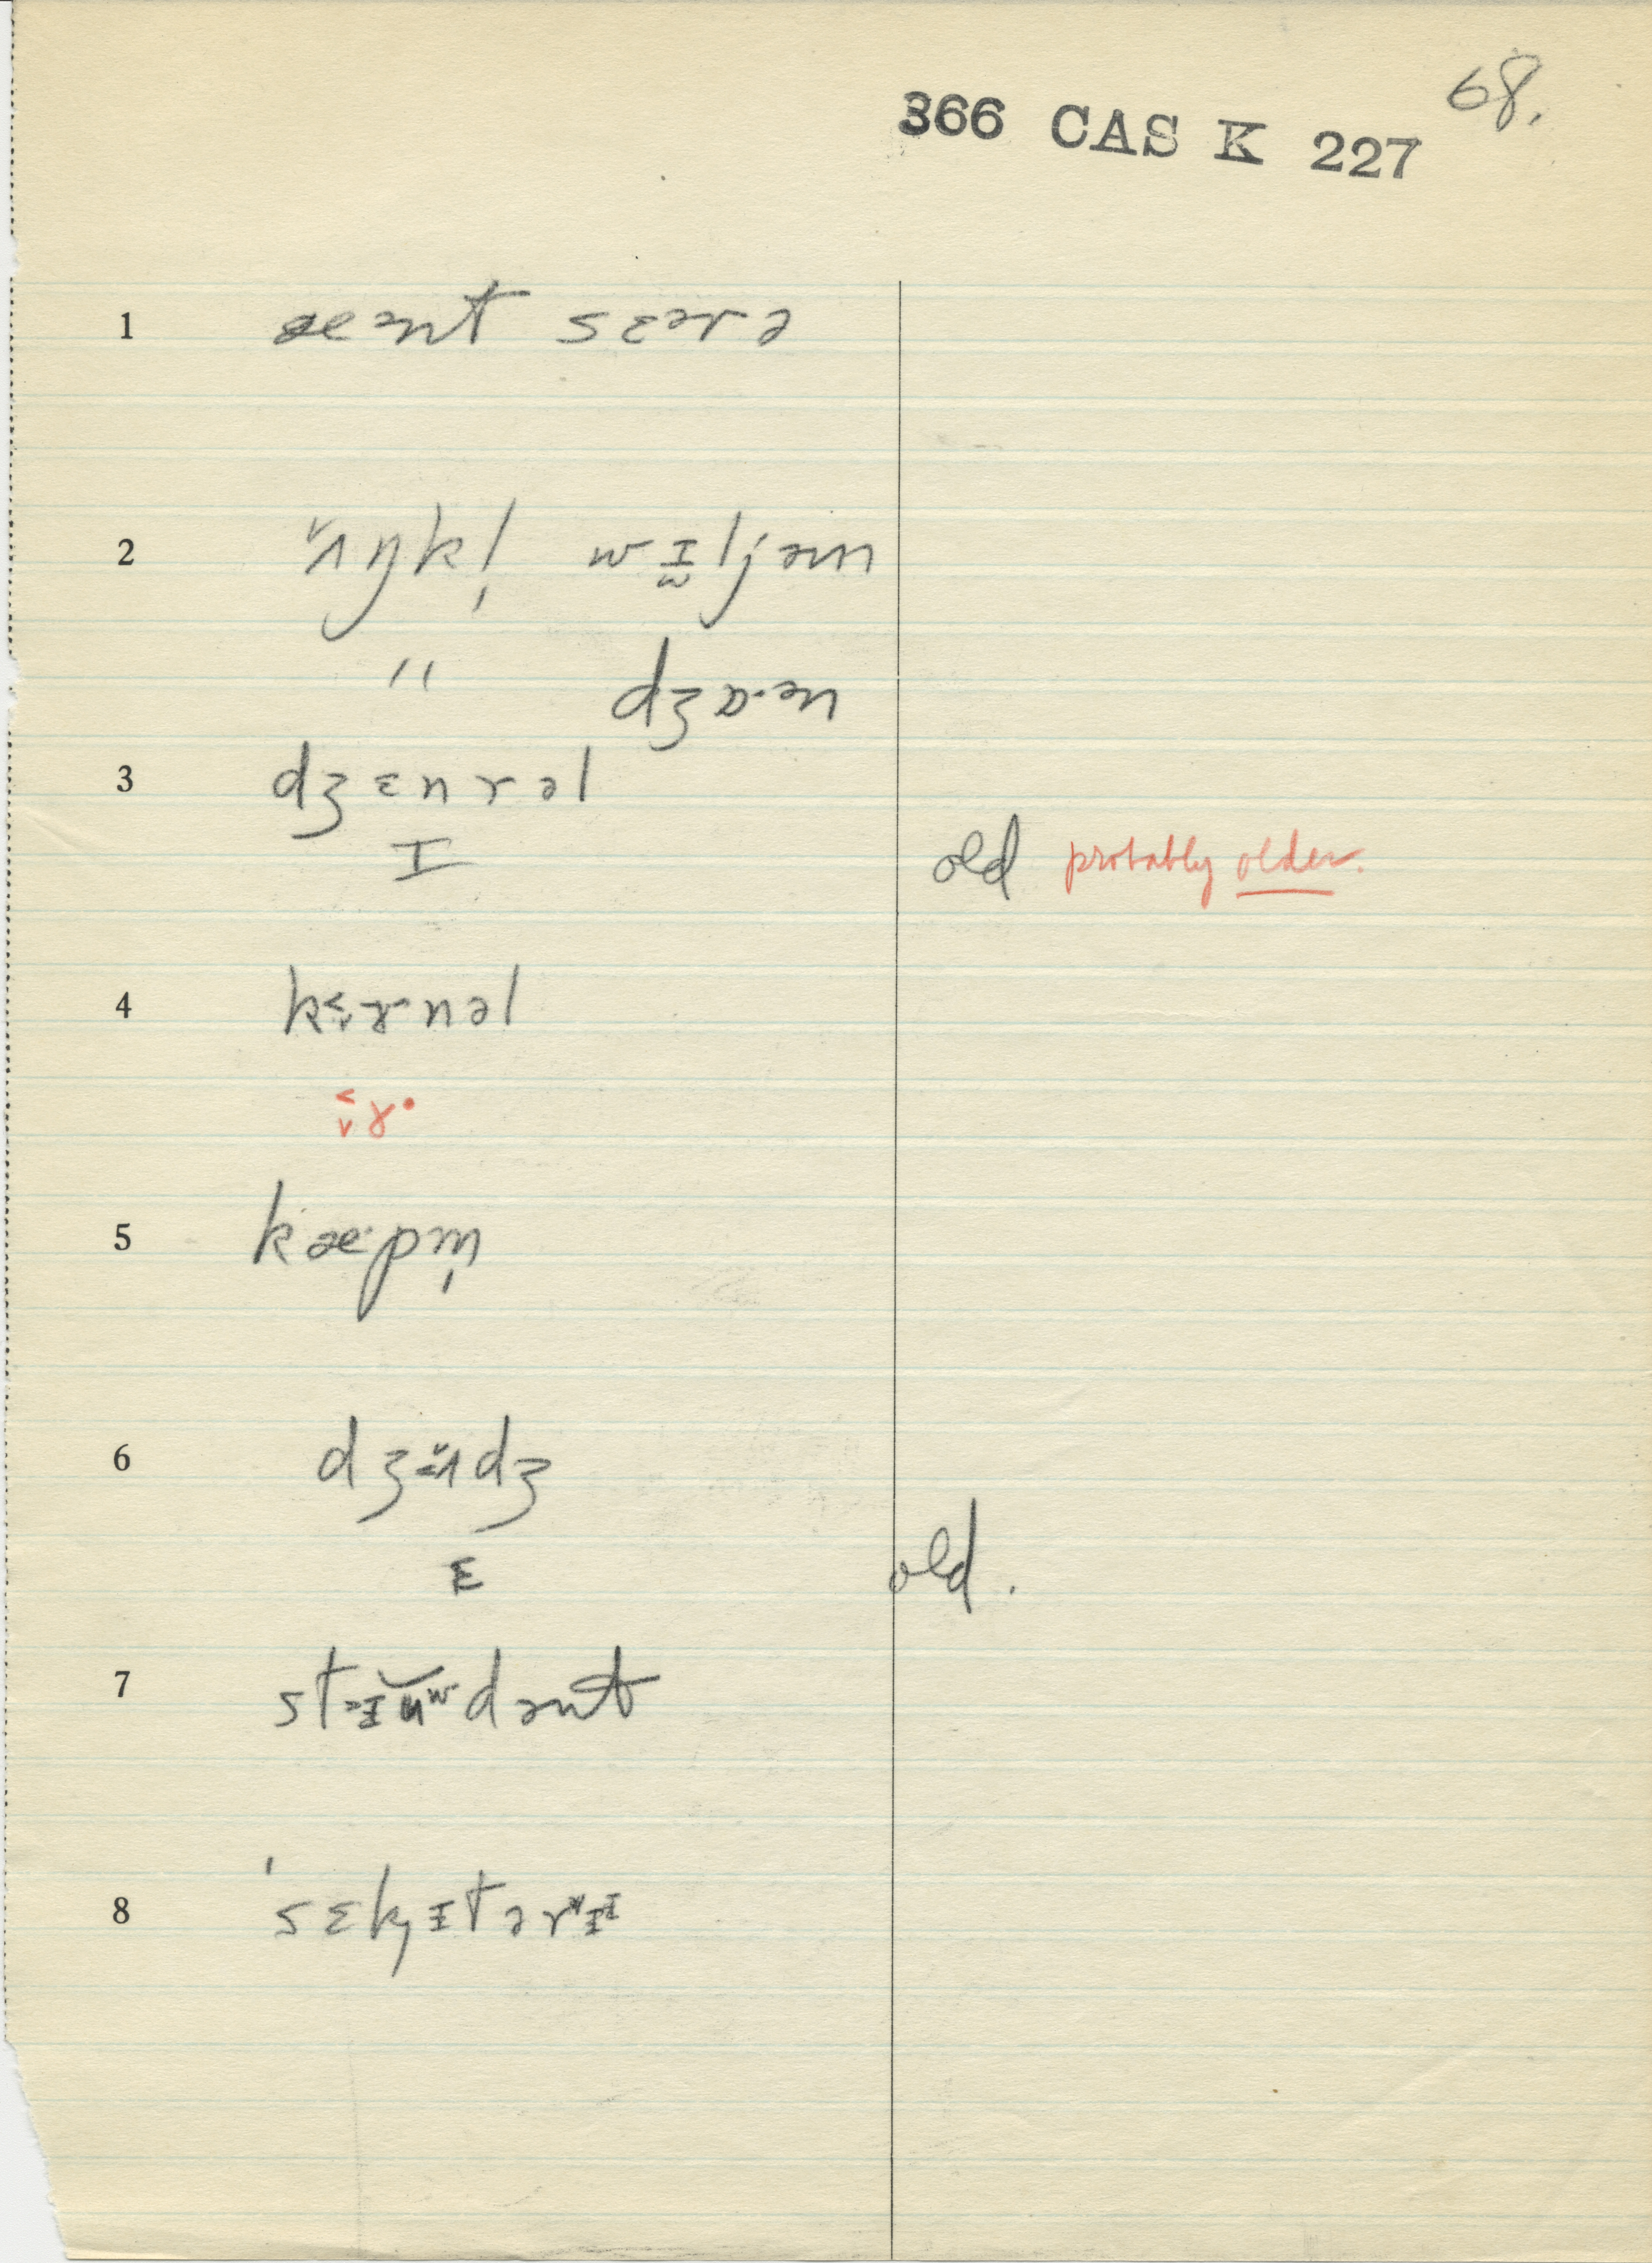 68.
366 CAS K 227
1 æənt sɛərə
2 ʌ̌ŋkl̩ wɪ̯ljəm
" dʒɒ·ən
3 dʒɛnrəl
I old probably older.
4 k˂˅ɤnəl
˂˅ɤ•
5 kæ·pm̩
6 dʒɜʌ̌dʒ
ɛ old.
7 stɪŭʷdənt
8 'sɛkɪtərɪ